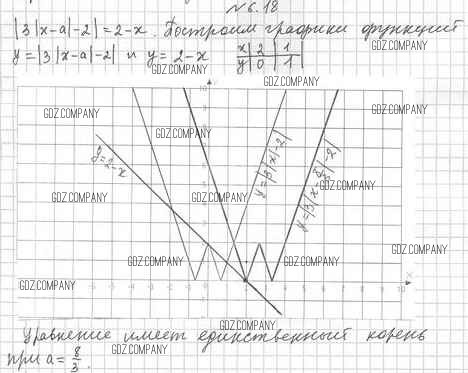 №6.18
|3|x-a|-2|=2-x. Построим графики функций
GDZ.COMPANY
y=|3|x-a|-2| и y=2-x
x 2 1
y 0 1
GDZ.COMPANY
10
GDZ.COMPANY
GDZ.COMPANY
GDZ.COMPANY
y=2-x
y=|3|x|-2|
y=|3|x-8/3|-2|
GDZ.COMPANY
GDZ.COMPANY
GDZ.COMPANY
GDZ.COMPANY
GDZ.COMPANY
GDZ.COMPANY
GDZ.COMPANY
GDZ.COMPANY
10
Уравнение имеет единственный корень
GDZ.COMPANY
при a=8/3.
GDZ.COMPANY